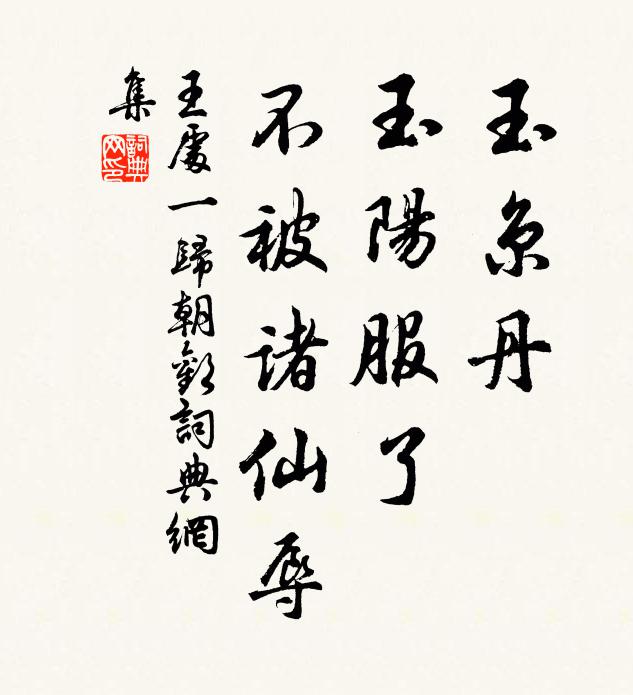 玉京丹
玉陽服了
不被諸仙辱
王處一歸朝歡詞典網
集
詞典網印